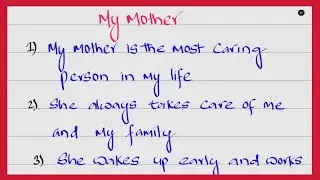 My Mother
1) My mother is the most caring
person in my life
2) She always takes care of me
and my family
3) She wakes up early and works